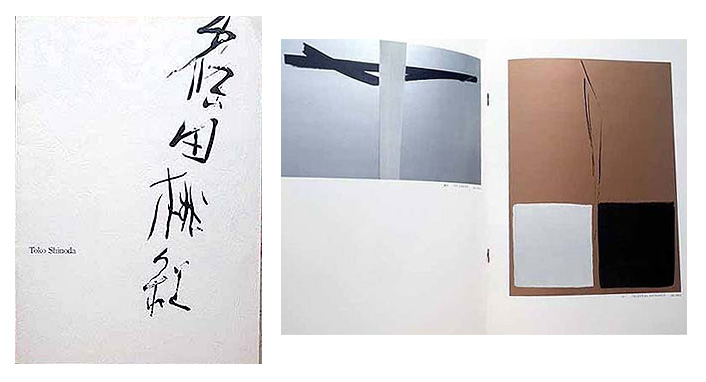 篠田桃紅
Toko Shinoda